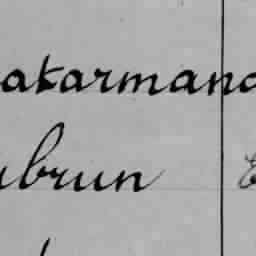 akarmand
ubrun